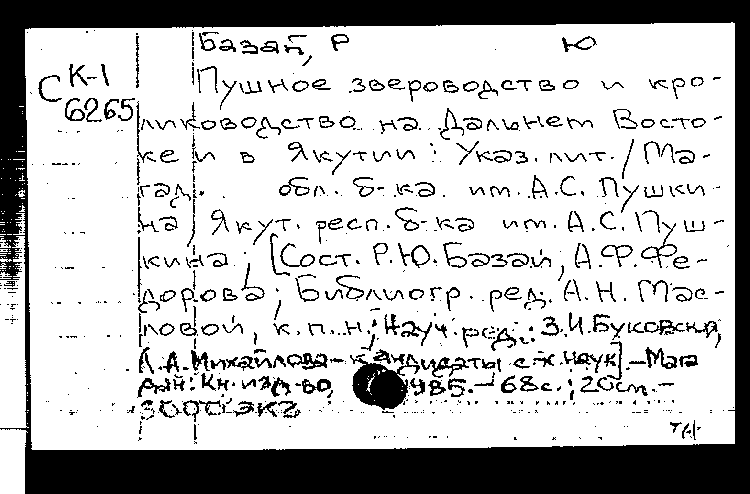 Базай, Р Ю
С К-1
6265
Пушное звероводство и кро-
лиководство на Дальнем Восто-
ке и в Якутии: Указ. лит. / Ма-
гад. обл. б-ка им. А.С. Пушки-
на, Якут. респ. б-ка им. А.С. Пуш-
кина; [Сост. Р.Ю. Базай, А.Ф. Фе-
дорова; Библиогр. ред. А.Н. Мас-
ловой, к.п.н.; Науч. ред.: З.И.
Л.А. Михайлова - кандидаты с-х. наук]. - Мага
дан: Кн. изд-во, 1985. - 68 с.; 20 см. -
3000 экз